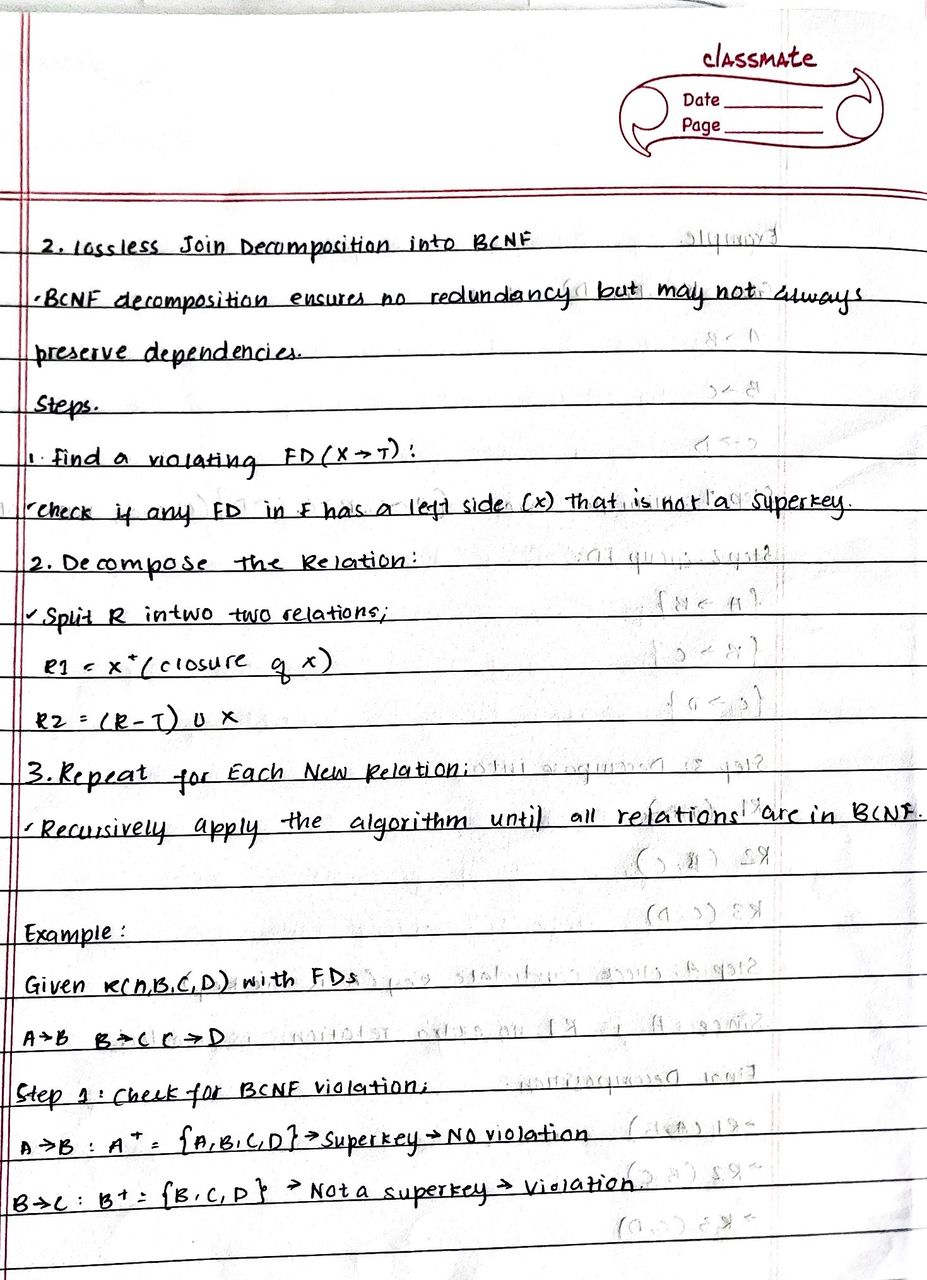 classmate
Date
Page
2. lossless Join Decomposition into BCNF
·BCNF decomposition ensures no redundancy but may not always
preserve dependencies.
Steps.
1. find a violating FD (X→T):
✓check if any FD in F has a left side (x) that is not a superkey.
2. Decompose the Relation:
✓ Split R intwo two relations;
R1 = x⁺ (closure of x)
R2 = (R-T) U X
3. Repeat for Each New Relation:
✓ Recursively apply the algorithm until all relations are in BCNF.
Example:
Given R(A,B,C,D) with FDs
A→B B→C C→D
Step 1: Check for BCNF violation;
A→B : A⁺ = {A,B,C,D} → Superkey → NO violation
B→C : B⁺ = {B,C,D} → Not a superkey → Violation.